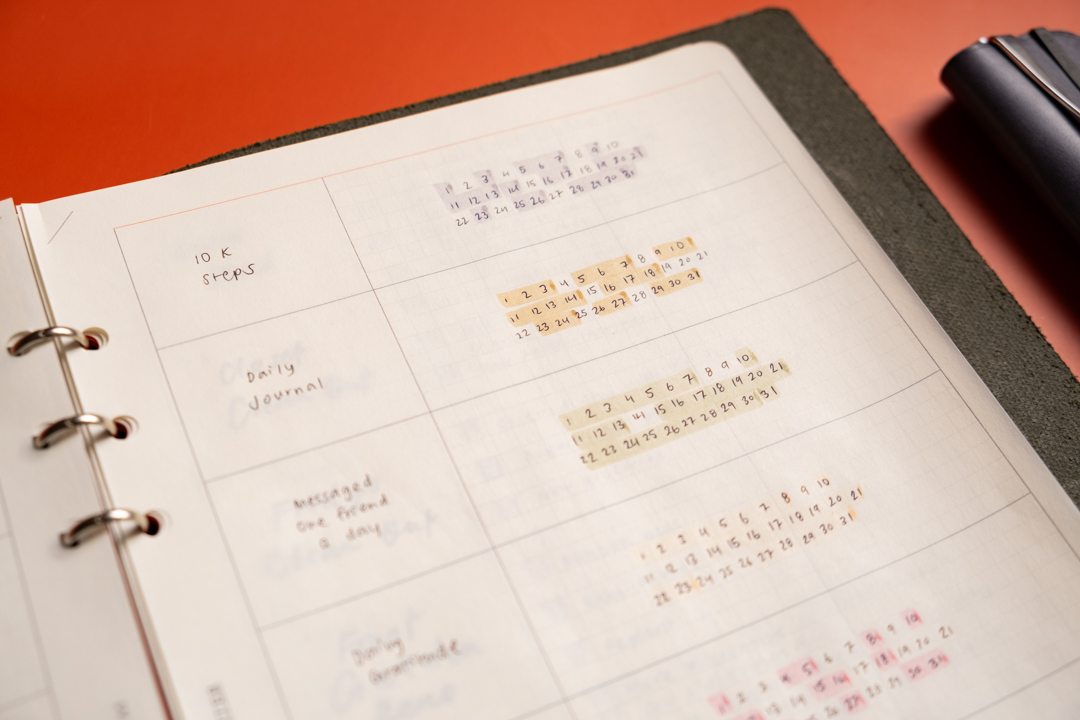 10 K
steps
1 2 3 4 5 6 7 8 9 10
11 12 13 14 15 16 17 18 19 20 21
22 23 24 25 26 27 28 29 30 31
Daily
Journal
1 2 3 4 5 6 7 8 9 10
11 12 13 14 15 16 17 18 19 20 21
22 23 24 25 26 27 28 29 30 31
Messaged
one friend
a day
1 2 3 4 5 6 7 8 9 10
11 12 13 14 15 16 17 18 19 20 21
22 23 24 25 26 27 28 29 30 31
Daily
1 2 3 4 5 6 7 8 9 10
11 12 13 14 15 16 17 18 19 20 21
22 23 24 25 26 27 28 29 30 31
1 2 3 4 5 6 7 8 9 10
17 18 19 20 21
27 28 29 30 31